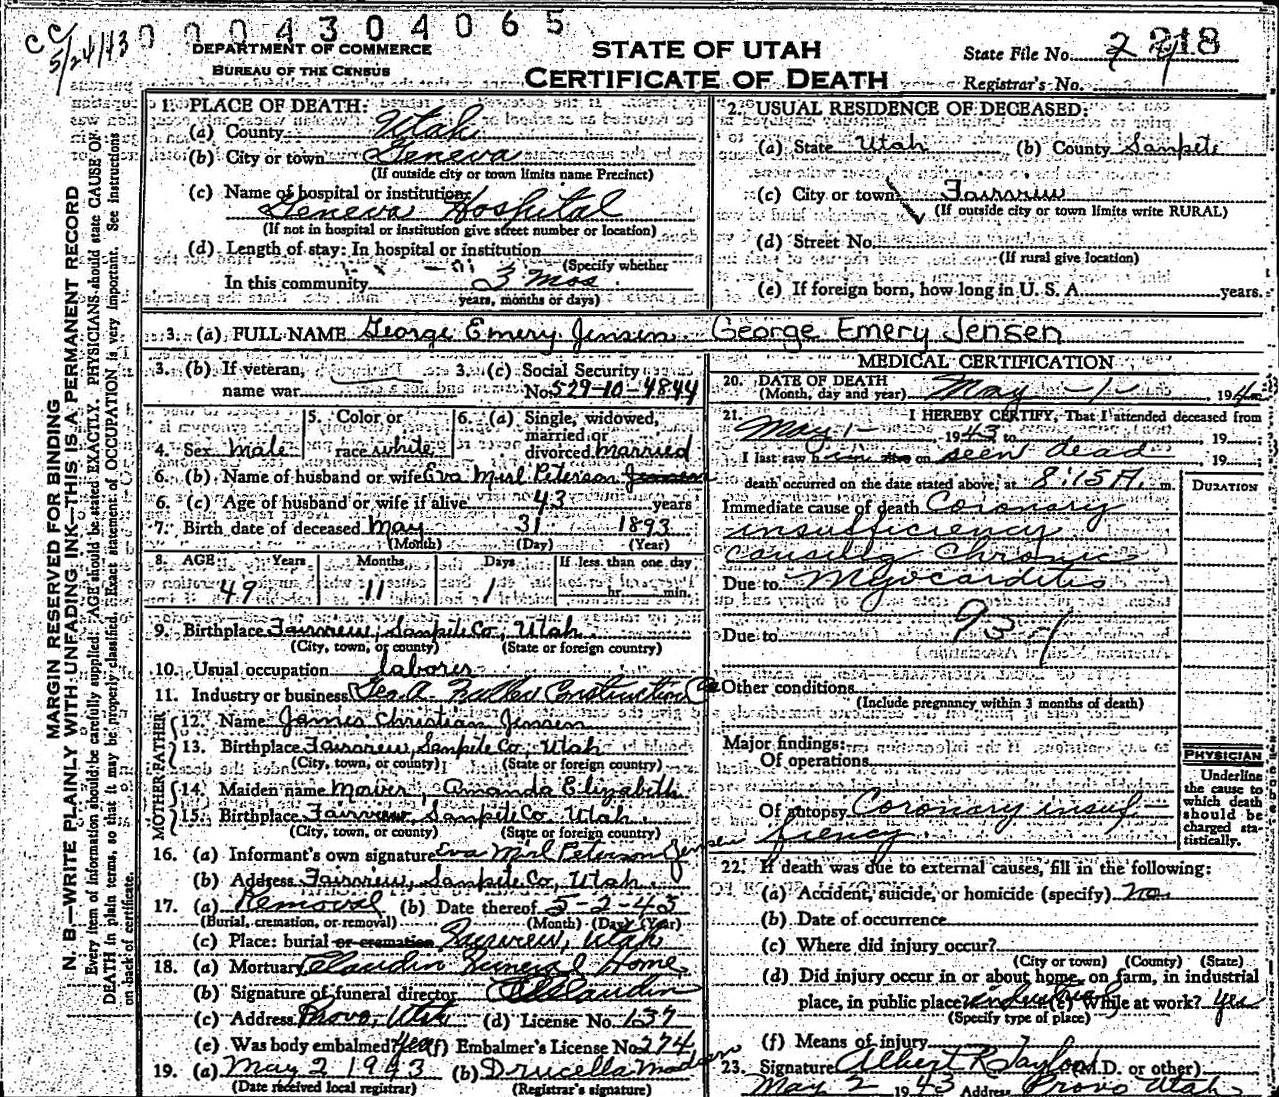 CC
5/24/43
0004304065
DEPARTMENT OF COMMERCE
BUREAU OF THE CENSUS
STATE OF UTAH
CERTIFICATE OF DEATH
State File No.
218
Registrar's No.
MARGIN RESERVED FOR BINDING
N. B.—WRITE PLAINLY WITH UNFADING INK—THIS IS A PERMANENT RECORD
Every item of information should be carefully supplied. AGE should be stated EXACTLY. PHYSICIANS should state CAUSE OF
DEATH in plain terms, so that it may be properly classified. Exact statement of OCCUPATION is very important. See instructions
on back of certificate.
1. PLACE OF DEATH:
(a) County Utah
(b) City or town Geneva
(If outside city or town limits name Precinct)
(c) Name of hospital or institution:
Geneva Hospital
(If not in hospital or institution give street number or location)
(d) Length of stay: In hospital or institution
(Specify whether
In this community 3 mos.
years, months or days)
2. USUAL RESIDENCE OF DECEASED:
(a) State Utah (b) County Sanpete
(c) City or town Fairview
(If outside city or town limits write RURAL)
(d) Street No.
(If rural give location)
(e) If foreign born, how long in U. S. A. years.
3. (a) FULL NAME George Emery Jensen George Emery Jensen
3. (b) If veteran, name war
3. (c) Social Security No. 529-10-4844
4. Sex Male
5. Color or race white
6. (a) Single, widowed, married or divorced married
6. (b) Name of husband or wife Eva Mirl Peterson Jensen
6. (c) Age of husband or wife if alive 43 years
7. Birth date of deceased May 31 1893
(Month) (Day) (Year)
8. AGE Years Months Days If less than one day
49 11 1 hr. min.
9. Birthplace Fairview, Sanpete Co, Utah.
(City, town, or county) (State or foreign country)
10. Usual occupation laborer
11. Industry or business Geo. A. Construction Co
FATHER
12. Name James Christian Jensen
13. Birthplace Fairview, Sanpete Co, Utah
(City, town, or county) (State or foreign country)
MOTHER
14. Maiden name Mower, Amanda Elizabeth
15. Birthplace Fairview, Sanpete Co, Utah.
(City, town, or county) (State or foreign country)
16. (a) Informant's own signature Eva Mirl Peterson Jensen
(b) Address Fairview, Sanpete Co, Utah.
17. (a) Removal (b) Date thereof 5-2-43
(Burial, cremation, or removal) (Month) (Day) (Year)
(c) Place: burial or cremation Fairview, Utah
18. (a) Mortuary Claudin Funeral Home
(b) Signature of funeral director Claudin
(c) Address Provo, Utah (d) License No. 137
(e) Was body embalmed? yes (f) Embalmer's License No. 274
19. (a) May 2 1943 (b) Drucella
(Date received local registrar) (Registrar's signature)
MEDICAL CERTIFICATION
20. DATE OF DEATH
(Month, day and year) May -1- 194
21. I HEREBY CERTIFY, That I attended deceased from
May 1- 1943 to 19
I last saw h im alive on seen dead 19
death occurred on the date stated above, at 8:15 A. m.
DURATION
Immediate cause of death Coronary
insufficiency
causing chronic
Due to Myocarditis
93-1
Due to
Other conditions
(Include pregnancy within 3 months of death)
Major findings:
Of operations
Of autopsy Coronary insuf-
ficiency.
PHYSICIAN
Underline
the cause to
which death
should be
charged sta-
tistically.
22. If death was due to external causes, fill in the following:
(a) Accident, suicide, or homicide (specify) no
(b) Date of occurrence
(c) Where did injury occur?
(City or town) (County) (State)
(d) Did injury occur in or about home, on farm, in industrial
place, in public place? industrial While at work? yes
(Specify type of place)
(f) Means of injury
23. Signature Albert R Taylor (M.D. or other)
May 2 1943 Address Provo Utah